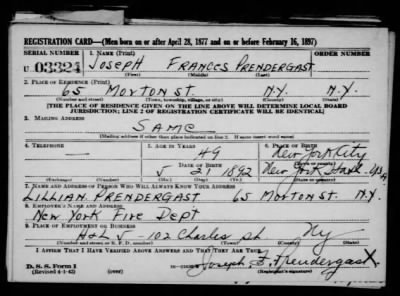 REGISTRATION CARD—(Men born on or after April 28, 1877 and on or before February 16, 1897)
SERIAL NUMBER 1. NAME (Print) ORDER NUMBER
U 03324 JOSEPH FRANCES PRENDERGAST
(First) (Middle) (Last)
2. PLACE OF RESIDENCE (Print)
65 MORTON ST. N.Y. N.Y.
(Number and street) (Town, township, village, or city) (County) (State)
[THE PLACE OF RESIDENCE GIVEN ON THE LINE ABOVE WILL DETERMINE LOCAL BOARD
JURISDICTION; LINE 2 OF REGISTRATION CERTIFICATE WILL BE IDENTICAL]
3. MAILING ADDRESS
SAME
(Mailing address if other than place indicated on line 2. If same insert word same)
4. TELEPHONE 5. AGE IN YEARS 6. PLACE OF BIRTH
— 49 New York City
DATE OF BIRTH (Town or county)
5 21 1892 New York State
(Exchange) (Number) (Mo.) (Day) (Yr.) (State or country)
7. NAME AND ADDRESS OF PERSON WHO WILL ALWAYS KNOW YOUR ADDRESS
LILLIAN PRENDERGAST 65 MORTON ST. N.Y.
8. EMPLOYER'S NAME AND ADDRESS
New York Fire Dept
9. PLACE OF EMPLOYMENT OR BUSINESS
H & L 5 - 102 Charles St. NY
(Number and street or R. F. D. number) (Town) (County) (State)
I AFFIRM THAT I HAVE VERIFIED ABOVE ANSWERS AND THAT THEY ARE TRUE.
D. S. S. Form 1
(Revised 4-1-42) (over) Joseph F. Prendergast
(Registrant's signature)